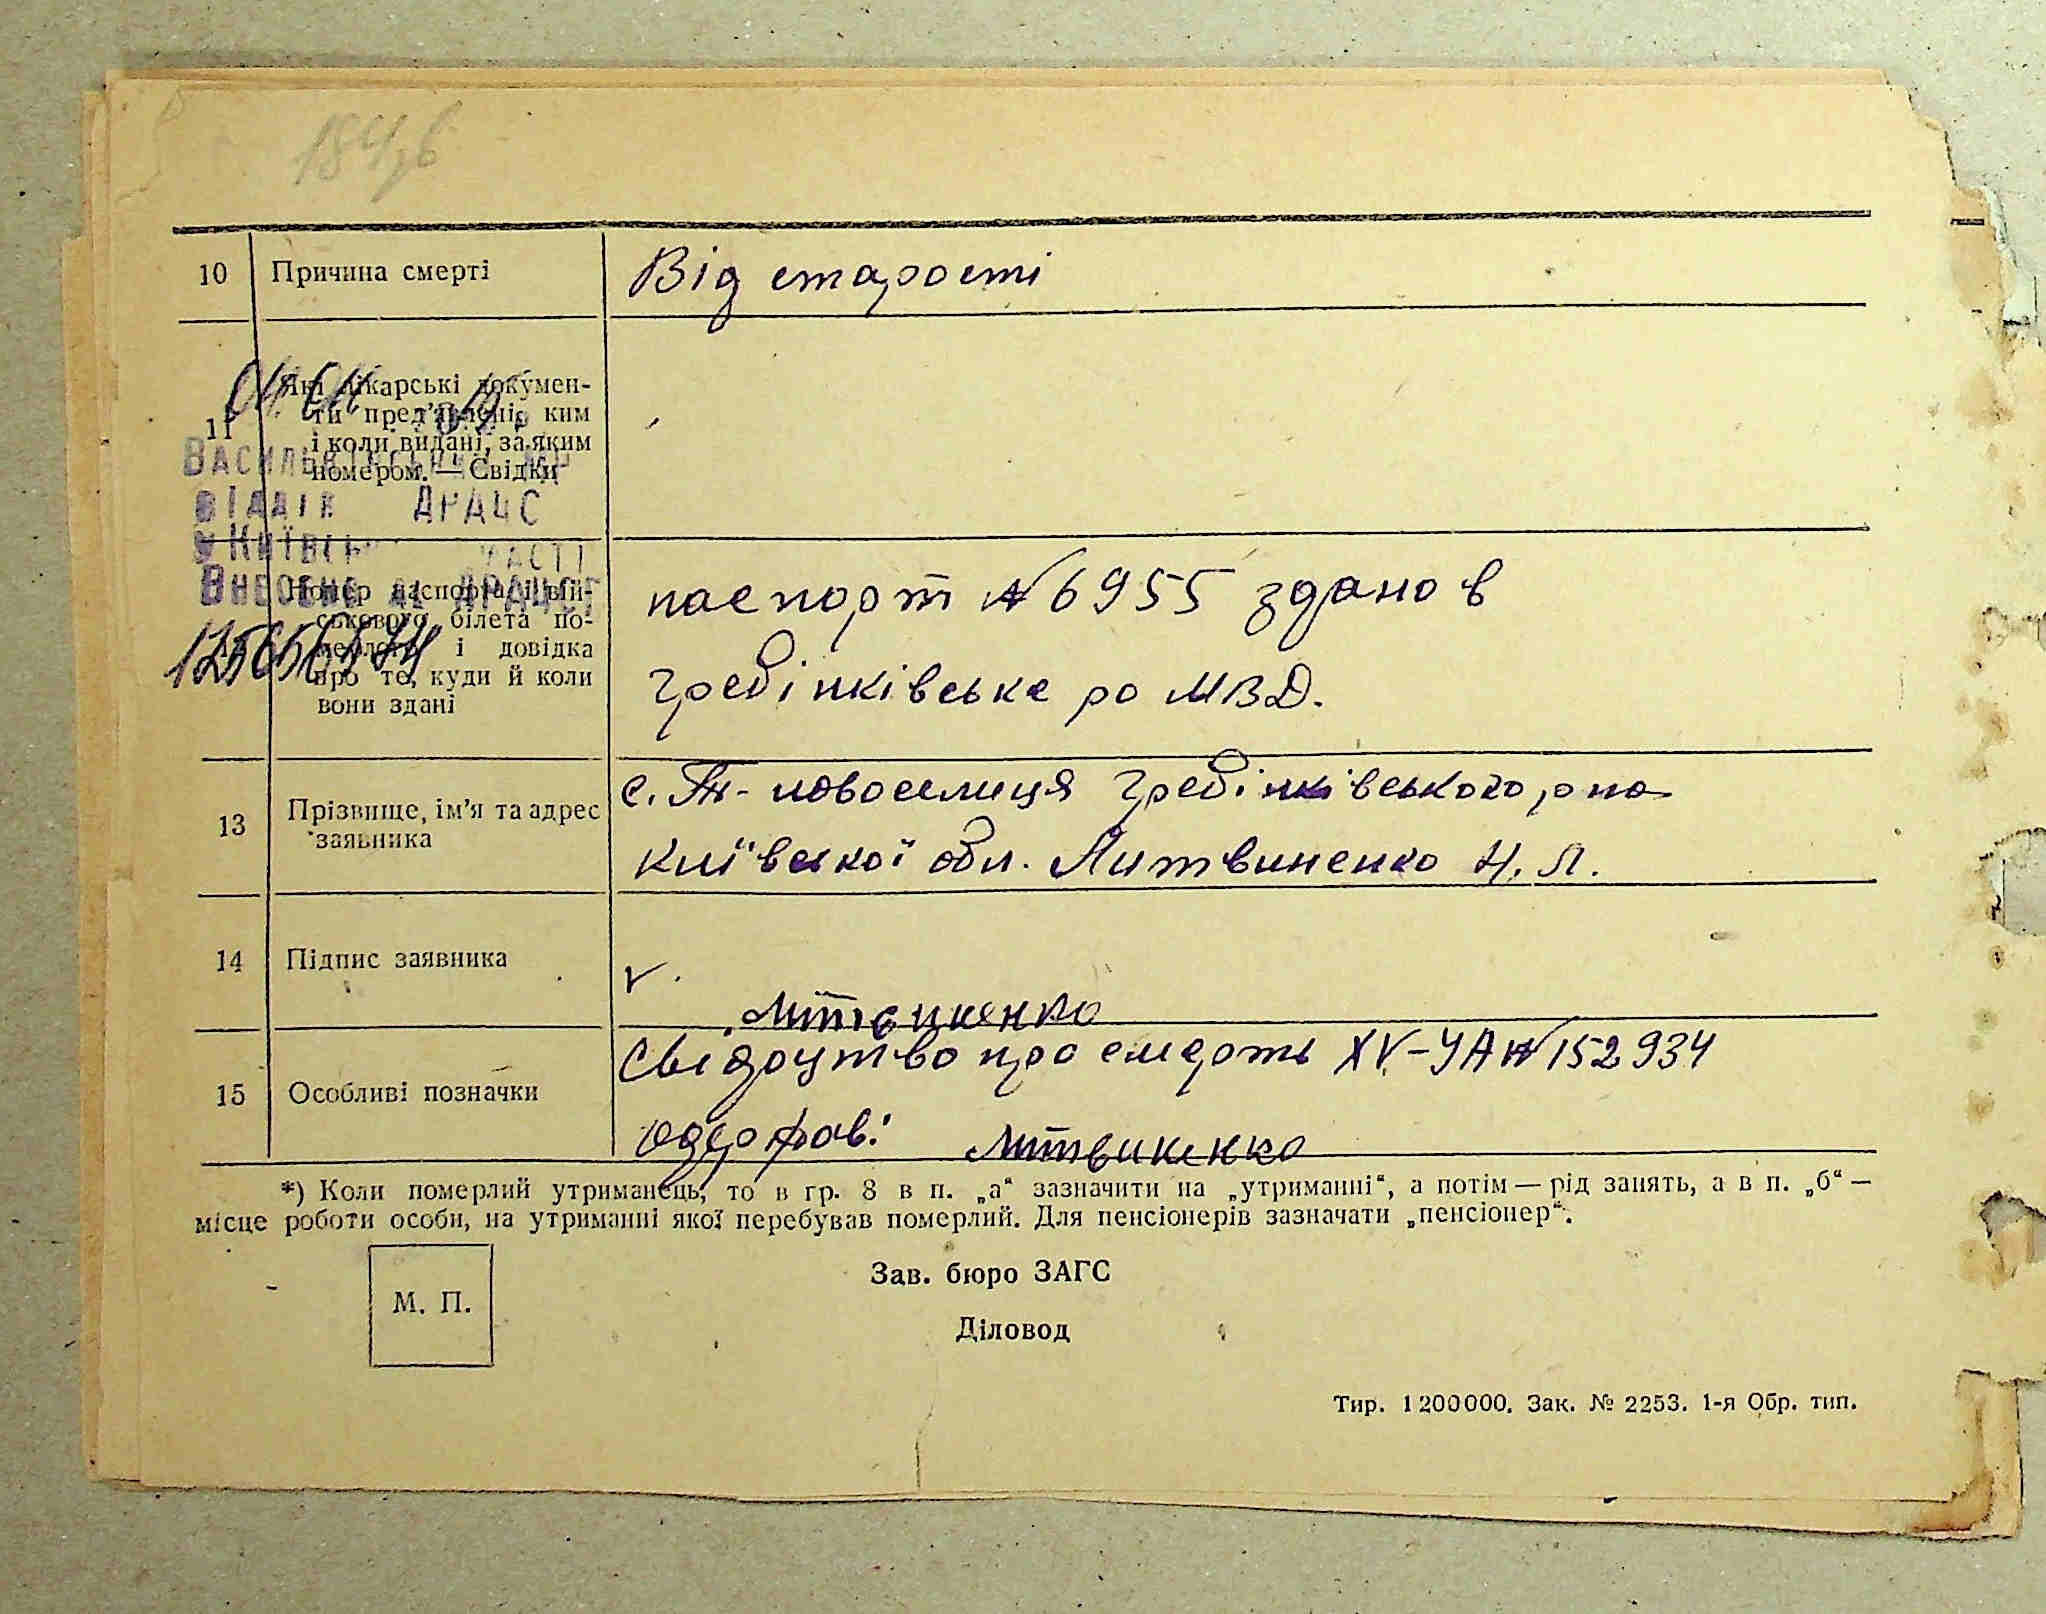 10 Причина смерті Від старості
11 Які лікарські докумен-
ти пред'явлені, ким
і коли видані, за яким
номером. — Свідки
відділ ДРАЦС
Номер паспорта і вій-
ськового білета по-
мерлого і довідка
про те, куди й коли
вони здані
паспорт №6955 здано в
Гребінківське ро МВД.
13 Прізвище, ім'я та адрес
заявника
с. Новоселиця Гребінківського р на
Київської обл. Литвиненко Н. Л.
14 Підпис заявника
Литвиненко
15 Особливі позначки
Свідоцтво про смерть XV-УА № 152934
Литвиненко
*) Коли померлий утриманець, то в гр. 8 в п. „а“ зазначити на „утриманні“, а потім — рід занять, а в п. „б“ —
місце роботи особи, на утриманні якої перебував померлий. Для пенсіонерів зазначати „пенсіонер“.
М. П.
Зав. бюро ЗАГС
Діловод
Тир. 1200000. Зак. № 2253. 1-я Обр. тип.